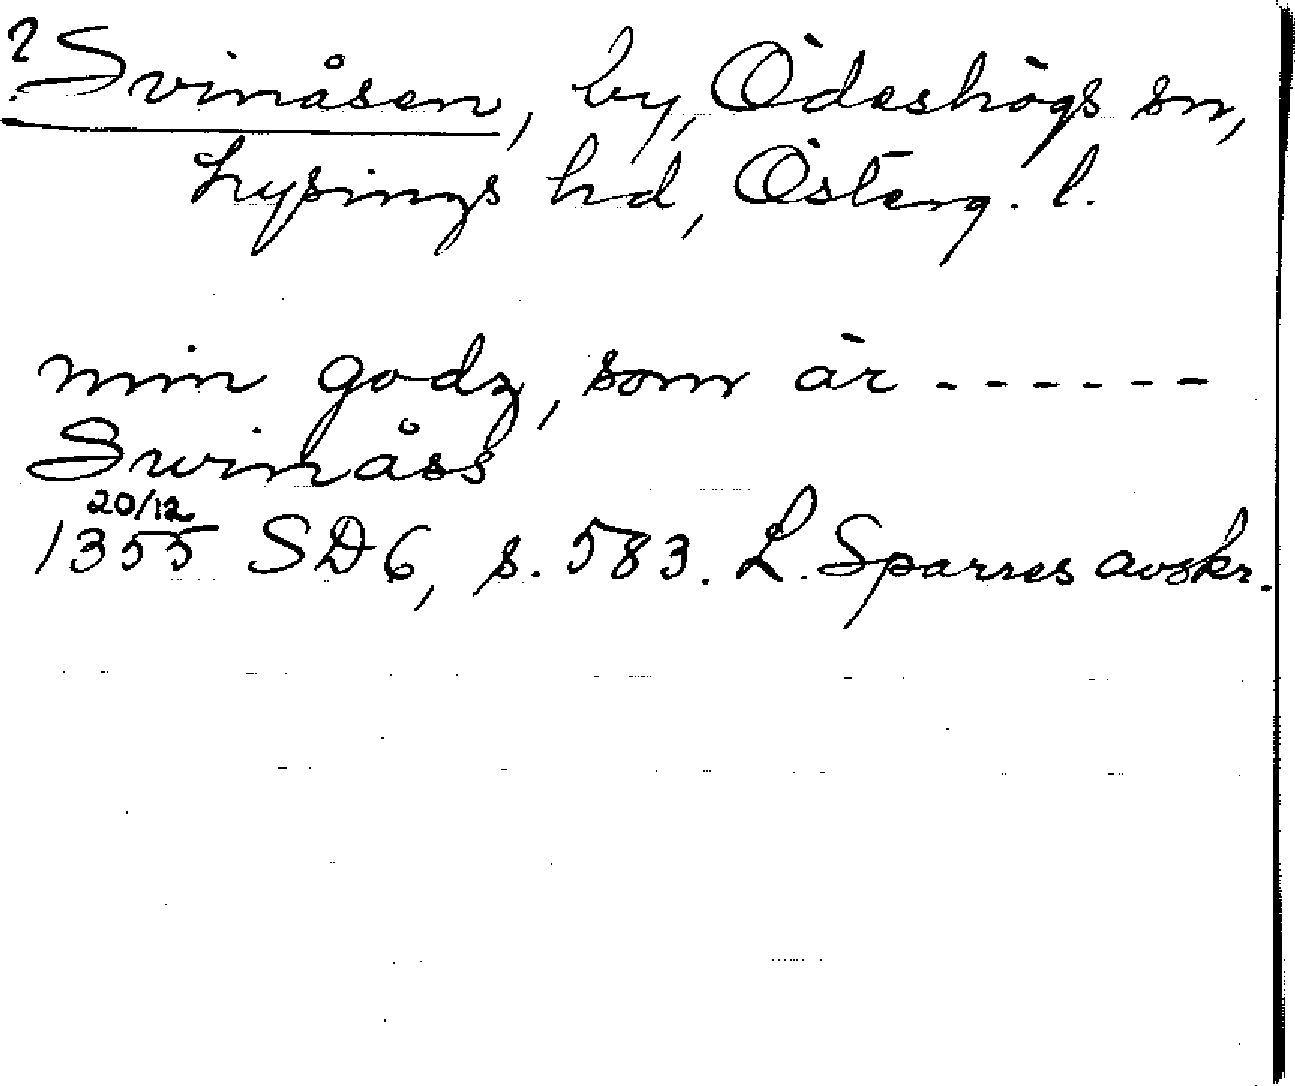 ? Svinåsen, by, Ödeshögs sn,
Lysings hd, Österg. l.
min godz, som är ------
Swinåss
20/12
1355 SD6, s. 583. L. Sparres avskr.